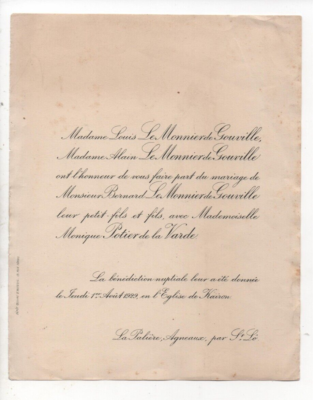 Madame Louis Le Monnier de Gouville,
Madame Alain Le Monnier de Gouville
ont l'honneur de vous faire part du mariage de
Monsieur Bernard Le Monnier de Gouville
leur petit-fils et fils, avec Mademoiselle
Monique Potier de la Varde
La bénédiction nuptiale leur a été donnée
le Jeudi 1er Août 1929, en l'Eglise de Kairon
La Palière, Agneaux, par St Lô